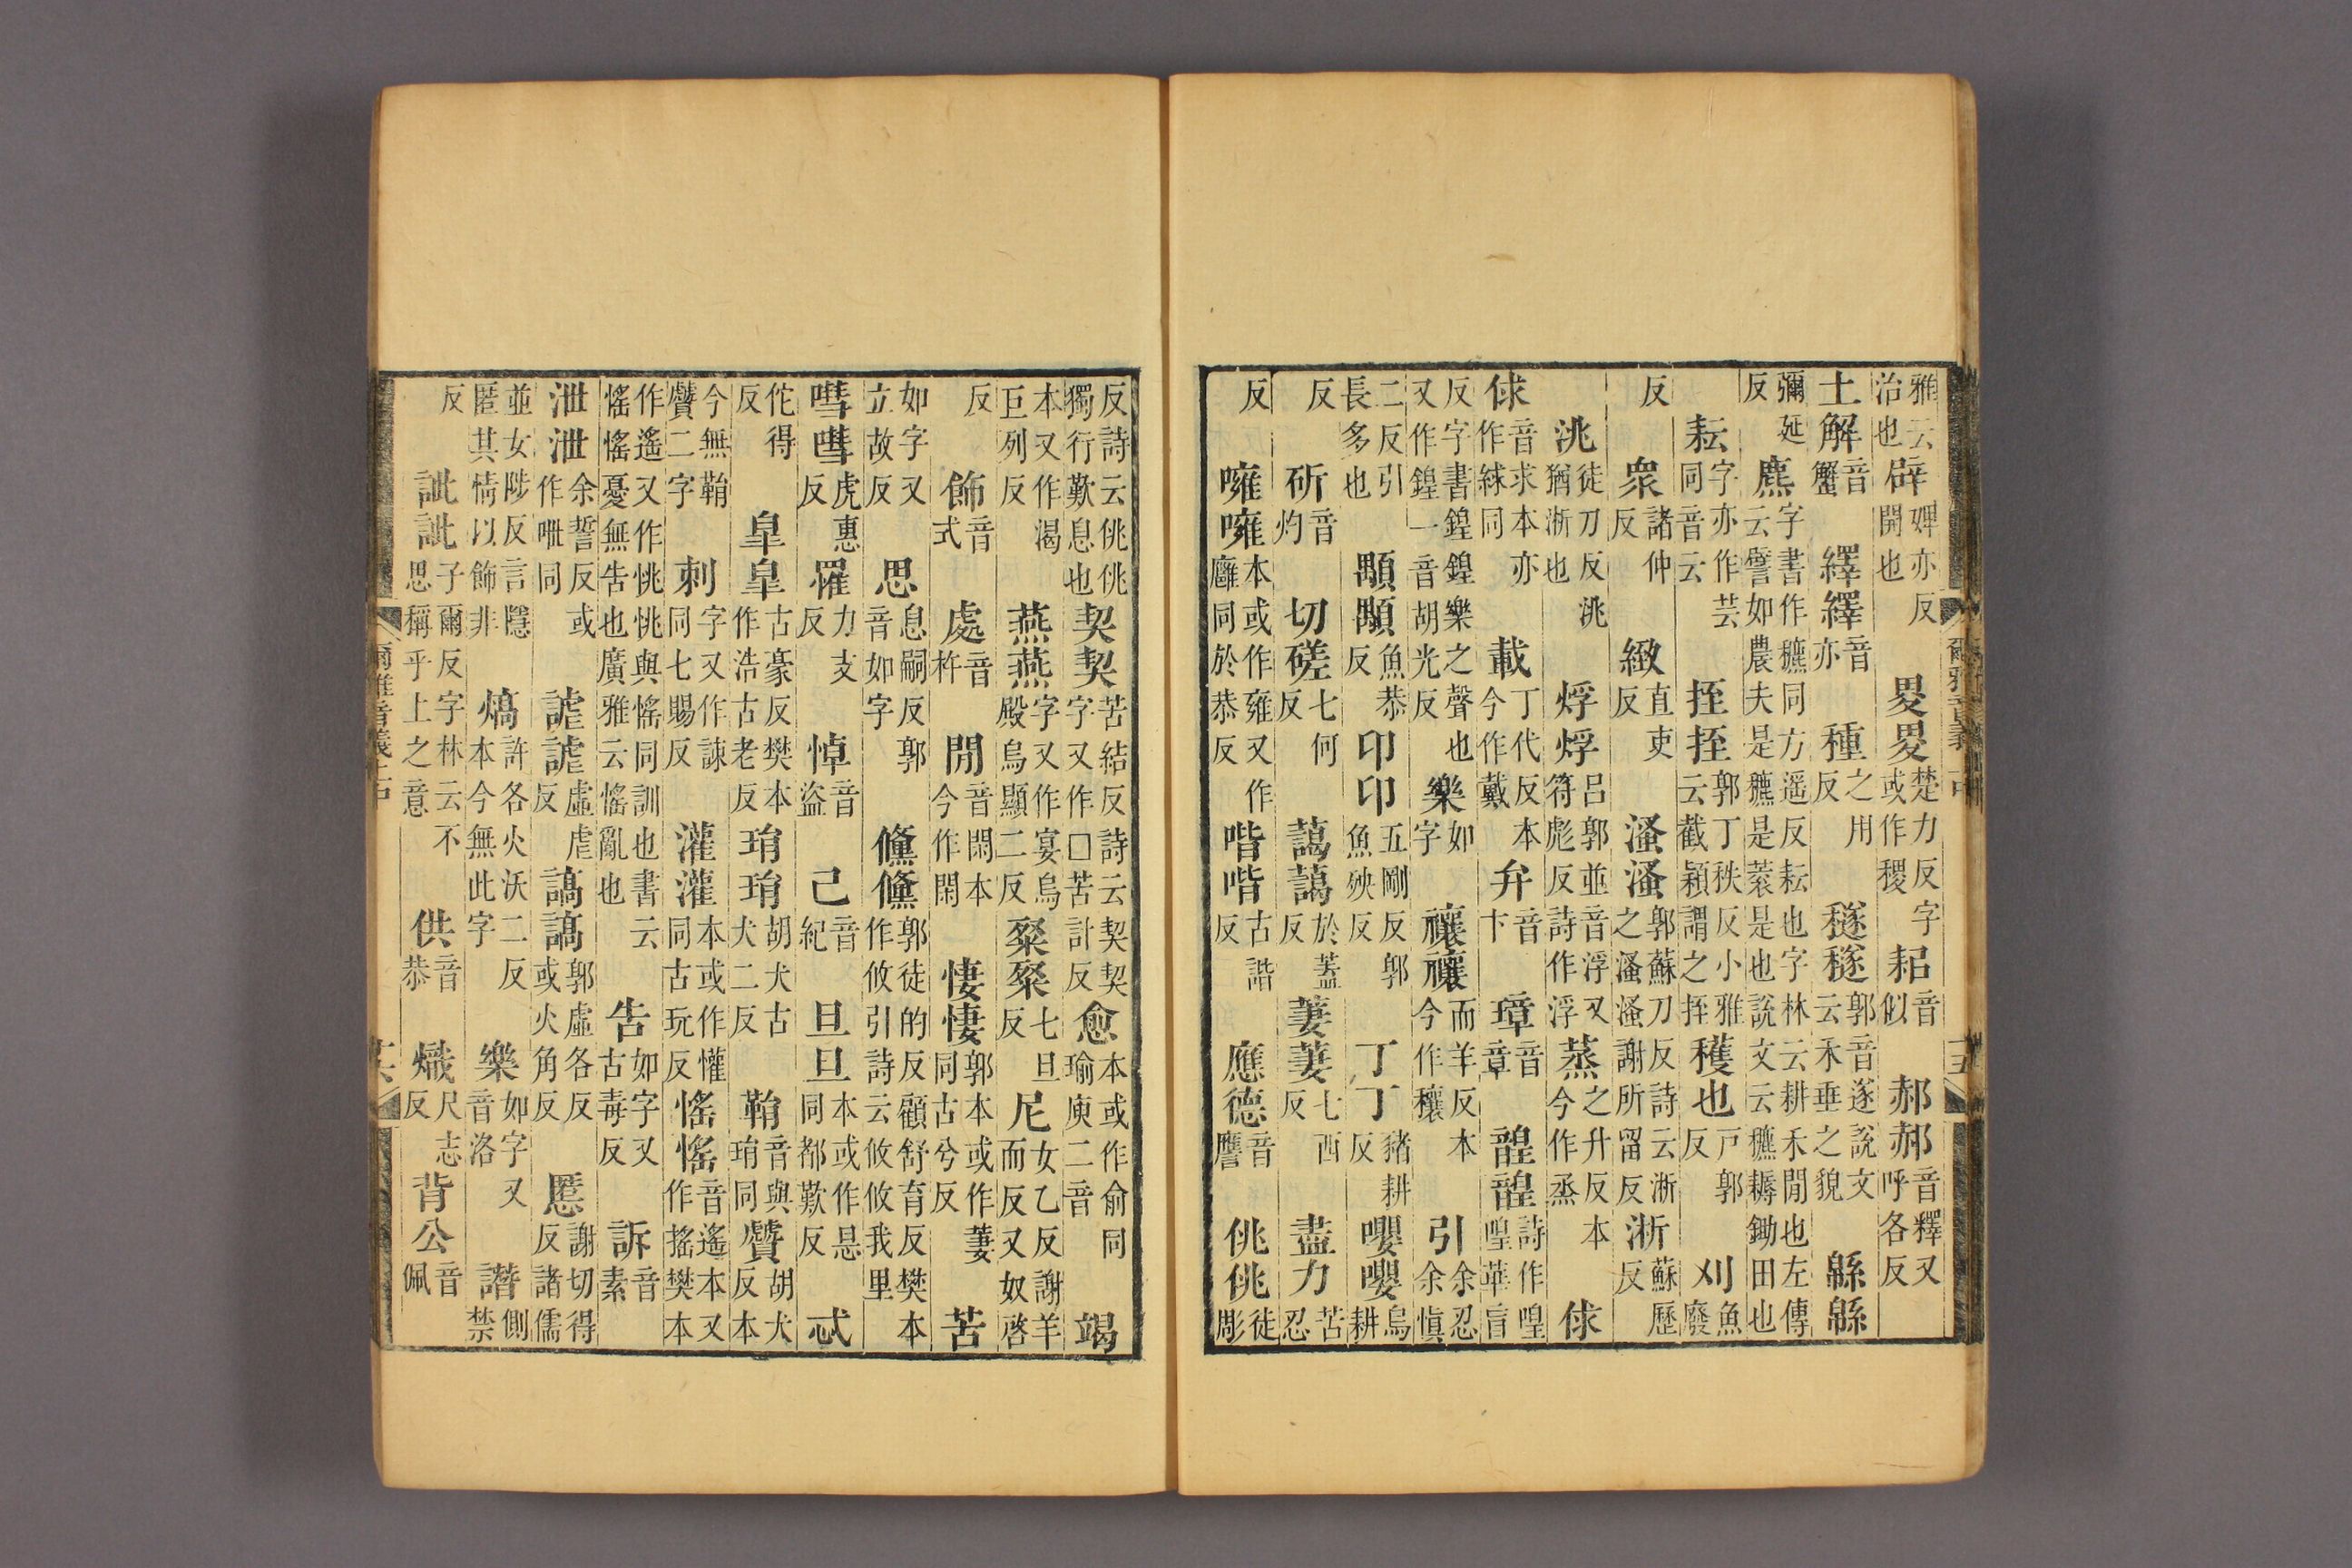 雅云治也辟婢亦反開也畟畟楚力反字或作稷耜音似郝郝音釋又呼各反
土解音蟹繹繹音亦種之用反穟穟郭音遂說文云禾垂之貌緜緜
彌延反麃字書作穮同方遥反耘也字林云耕禾閒也左傳云譬如農夫是穮是蔉是也說文云穮耨鋤田也
耘字亦作芸同音云挃挃郭丁秩反小雅云截穎謂之挃穫也戸郭反刈魚廢
反衆諸仲反緻直吏反溞溞郭蘇刀反詩云淅之溞溞謝所留反淅蘇歷反
洮徒刀反洮猶淅也烰烰吕郭並音浮又符彪反詩作浮蒸之升反本今作烝俅
俅音求本亦作絿同載丁代反本今作戴弁音卞璋音章韹韹詩作喤喤華盲
反字書鍠鍠樂之聲也又作鍠一音胡光反樂如字禳禳而羊反本今作穰引余忍余愼
二反引長多也顒顒魚恭反卬卬五剛反郭魚殃反丁丁豬耕反嚶嚶烏耕
反斫音灼切磋七何反藹藹於蓋反萋萋七西反盡力苦忍
反噰噰本或作雍又作廱同於恭反喈喈古諧反應德音膺佻佻徒彫
爾雅音義上中 十五
反詩云佻佻獨行歎息也契契苦結反詩云契契字又作□苦計反愈本或作俞同瑜庾二音竭
本又作渴巨列反燕燕字又作宴烏殿烏顯二反粲粲七旦反尼女乙反謝羊而反又奴啓
反飾音式處音杵閒音閑本今作閑悽悽郭本或作萋同古兮反苦
如字又立故反思息嗣反郭音如字儵儵郭徒的反顧舒育反樊本作攸引詩云攸攸我里
嘒嘒虎惠反罹力支反悼音盜己音紀旦旦本或作悬同都歎反忒
佗得反皐皐古豪反樊本作浩古老反琄琄胡犬古犬二反鞙音與琄同贙胡犬反本
今無鞙贙二字刺字又作諫同七賜反灌灌本或作懽同古玩反愮愮音遙本又作搖樊本
作遙又作恌恌與愮同訓也書云愮愮憂無告也廣雅云愮亂也告如字又古毒反訴音素
泄泄余誓反或作呭同謔謔虛虐反謞謞郭虛各反或火角反慝謝切得反諸儒
並女陟反言隱匿其情以飾非熇許各火沃二反本今無此字樂如字又音洛譖側禁
反訿訿子爾反字林云不思稱乎上之意供音恭熾尺志反背公音佩
爾雅音義上中 十六